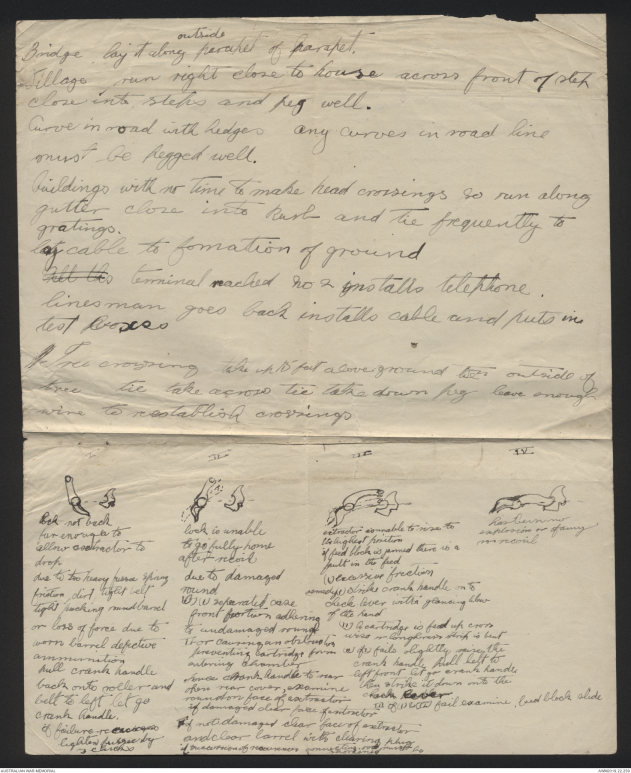 outside
Bridge lay it along parapet of parapet.
Village run right close to house across front of step
close into steps and peg well.
Curve in road with hedges any curves in road line
must be pegged well.
buildings with no time to make head crossings so run along
gutter close into kurb and tie frequently to
gratings.
lay cable to fomation of ground
terminal reached no 2 installs telephone.
linesman goes back installs cable and puts in
test boxes
Tree crossing take up 10 feet above ground outside of
tree tie take across tie take down peg leave enough
wire to reestablish crossings
I
II
III
IV
Lock not back
far enough to
allow extractor to
drop
due to too heavy fusee spring
friction dirt tight belt
tight packing mund barrel
or loss of force due to
worn barrel defective
ammunition
Pull crank handle
back onto roller and
belt to left let go
crank handle.
if failure
lighten fusee by
3 clicks
lock is unable
to go fully home
after recoil
due to damaged
round
separated case
front portion adhering
to undamaged round
or causing an obstruction
preventing cartridge from
entering chamber
crank handle to rear
open rear cover, examine
round or face of extractor
if damaged clear face extractor
if not damaged clear face of extractor
and clear barrel with clearing plug
extractor is unable to rise to
its highest position
if feed block is jammed there is a
fault in the feed
excessive friction
remedy strike crank handle onto
check lever with glancing blow
of the hand
a cartridge is feed up cross
wise or long brass strip is bent
if fails slightly raise the
crank handle pull belt to
left front let go crank handle
then strike it down onto the
check lever
if fail examine, feed block slide
has been no
explosion no or any
no recoil
AUSTRALIAN WAR MEMORIAL